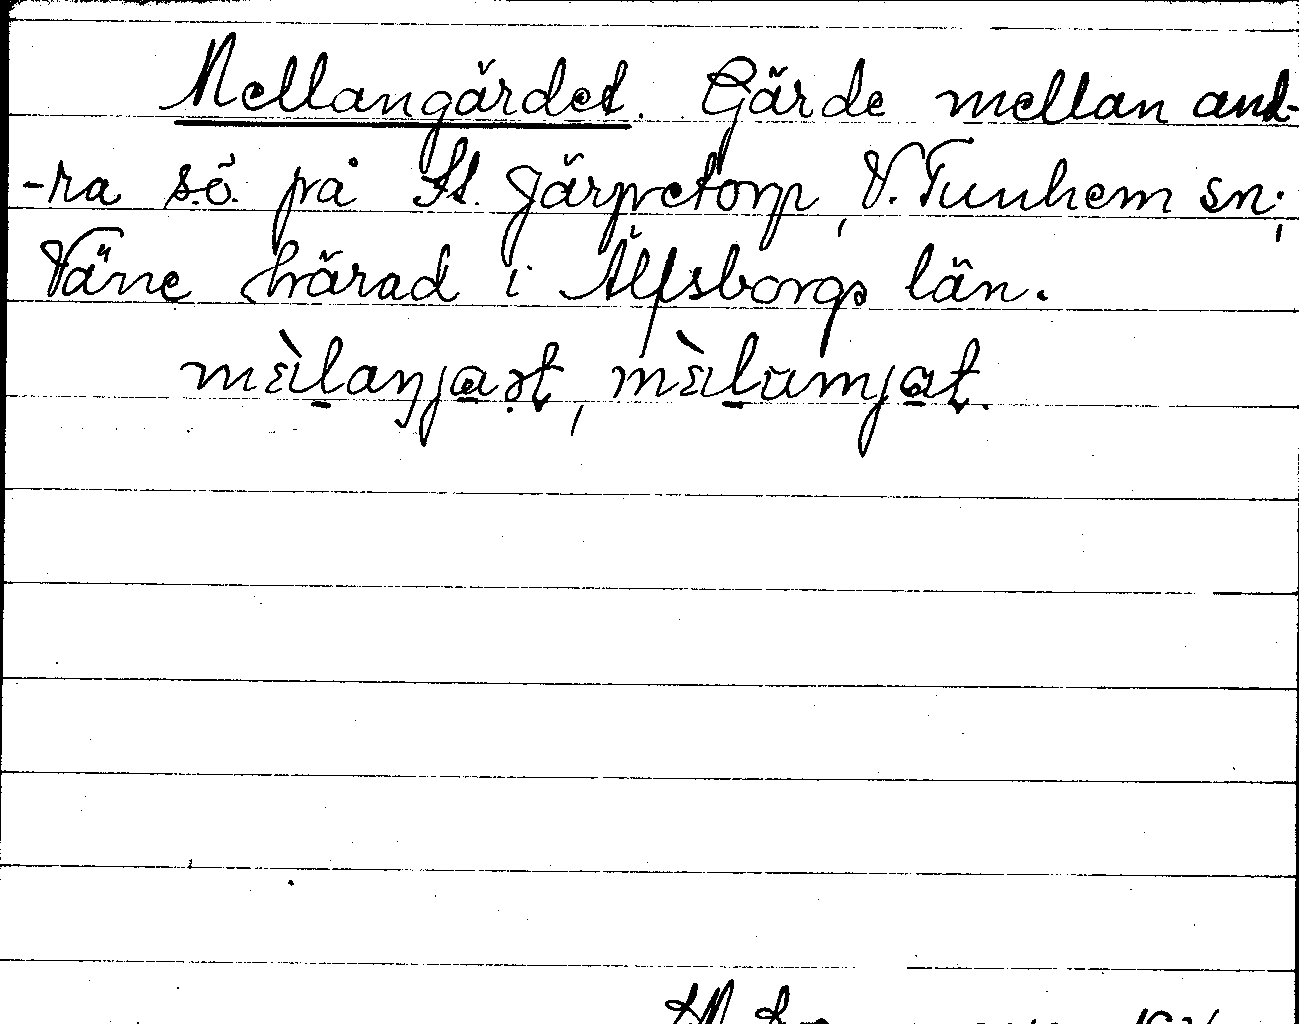 Mellangärdet. Gärde mellan and-
-ra s.ö. på St. Järpetorp, V. Tunhem sn;
Väne härad i Älfsborgs län.
mὲɩlaŋjaət, mὲɩlumjat.